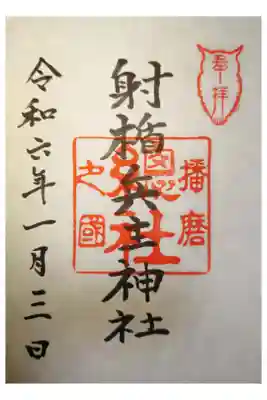 奉拝
播磨
射楯兵主神社
之國
令和六年一月三日